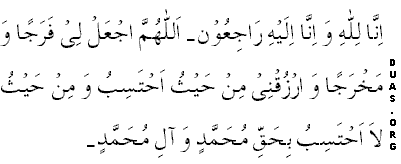 اِنَّا لِلّٰهِ وَ اِنَّا اِلَيْهِ رَاجِعُوْن۔ اَللّٰهُمَّ اجْعَلْ لِىْ فَرَجًا وَ
مَخْرَجًا وَ ارْزُقْنِىْ مِنْ حَيْثُ اَحْتَسِبُ وَ مِنْ حَيْثُ
لاَ اَحْتَسِبُ بِحَقِّ مُحَمَّدٍ وَ آلِ مُحَمَّدٍ۔
DUAS.ORG